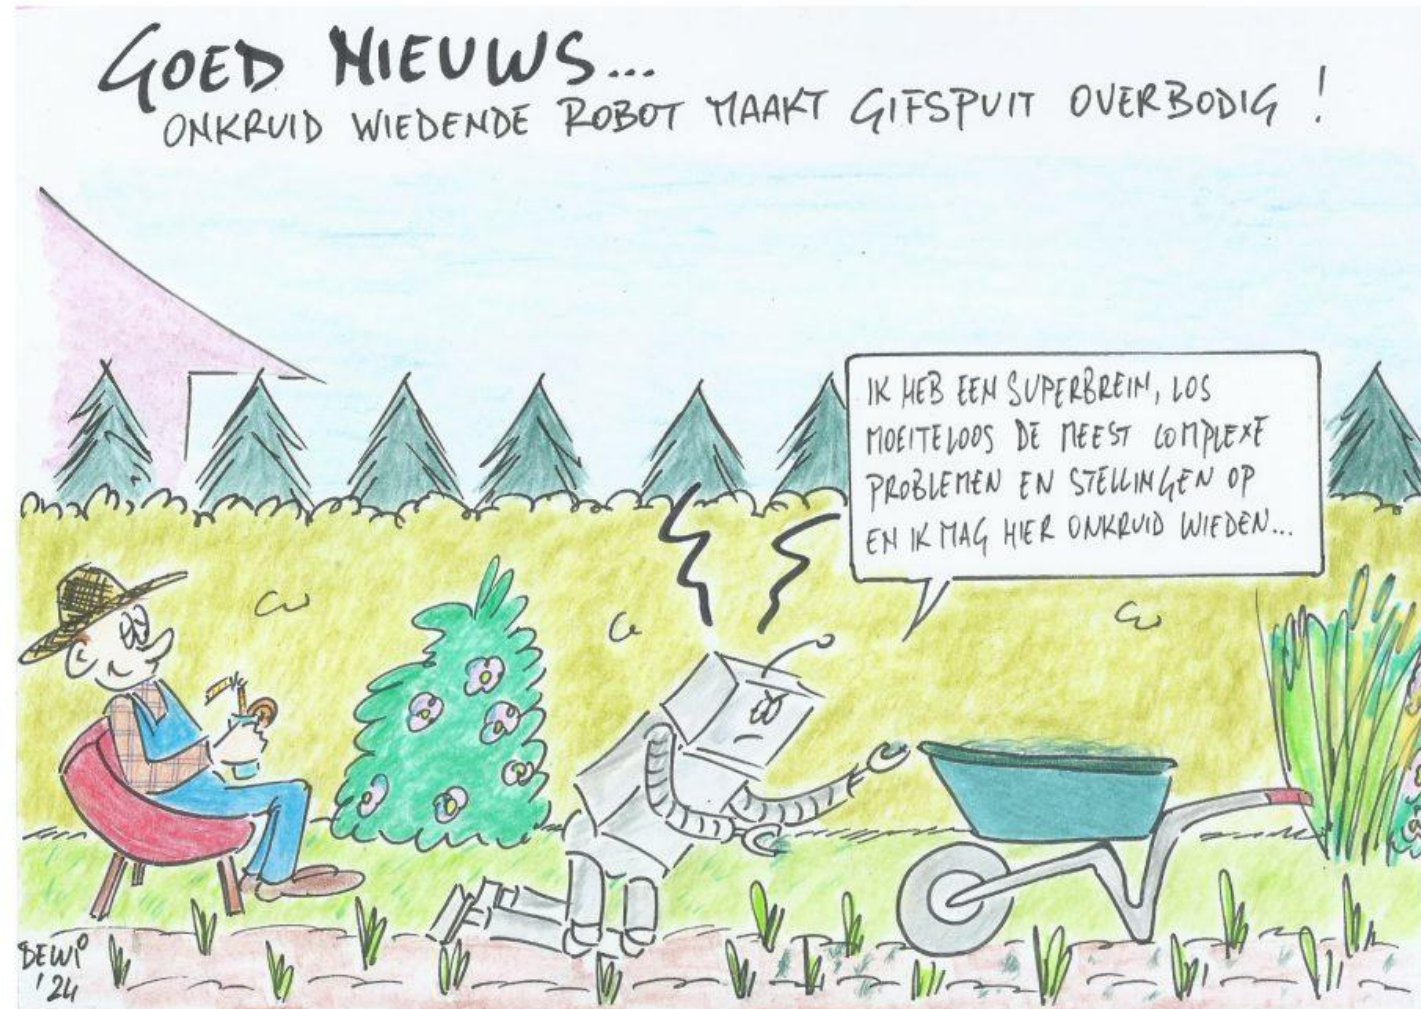 GOED NIEUWS...
ONKRUID WIEDENDE ROBOT MAAKT GIFSPUIT OVERBODIG !
IK HEB EEN SUPERBREIN, LOS
MOEITELOOS DE MEEST COMPLEXE
PROBLEMEN EN STELLINGEN OP
EN IK MAG HIER ONKRUID WIEDEN...
DEWI
'24